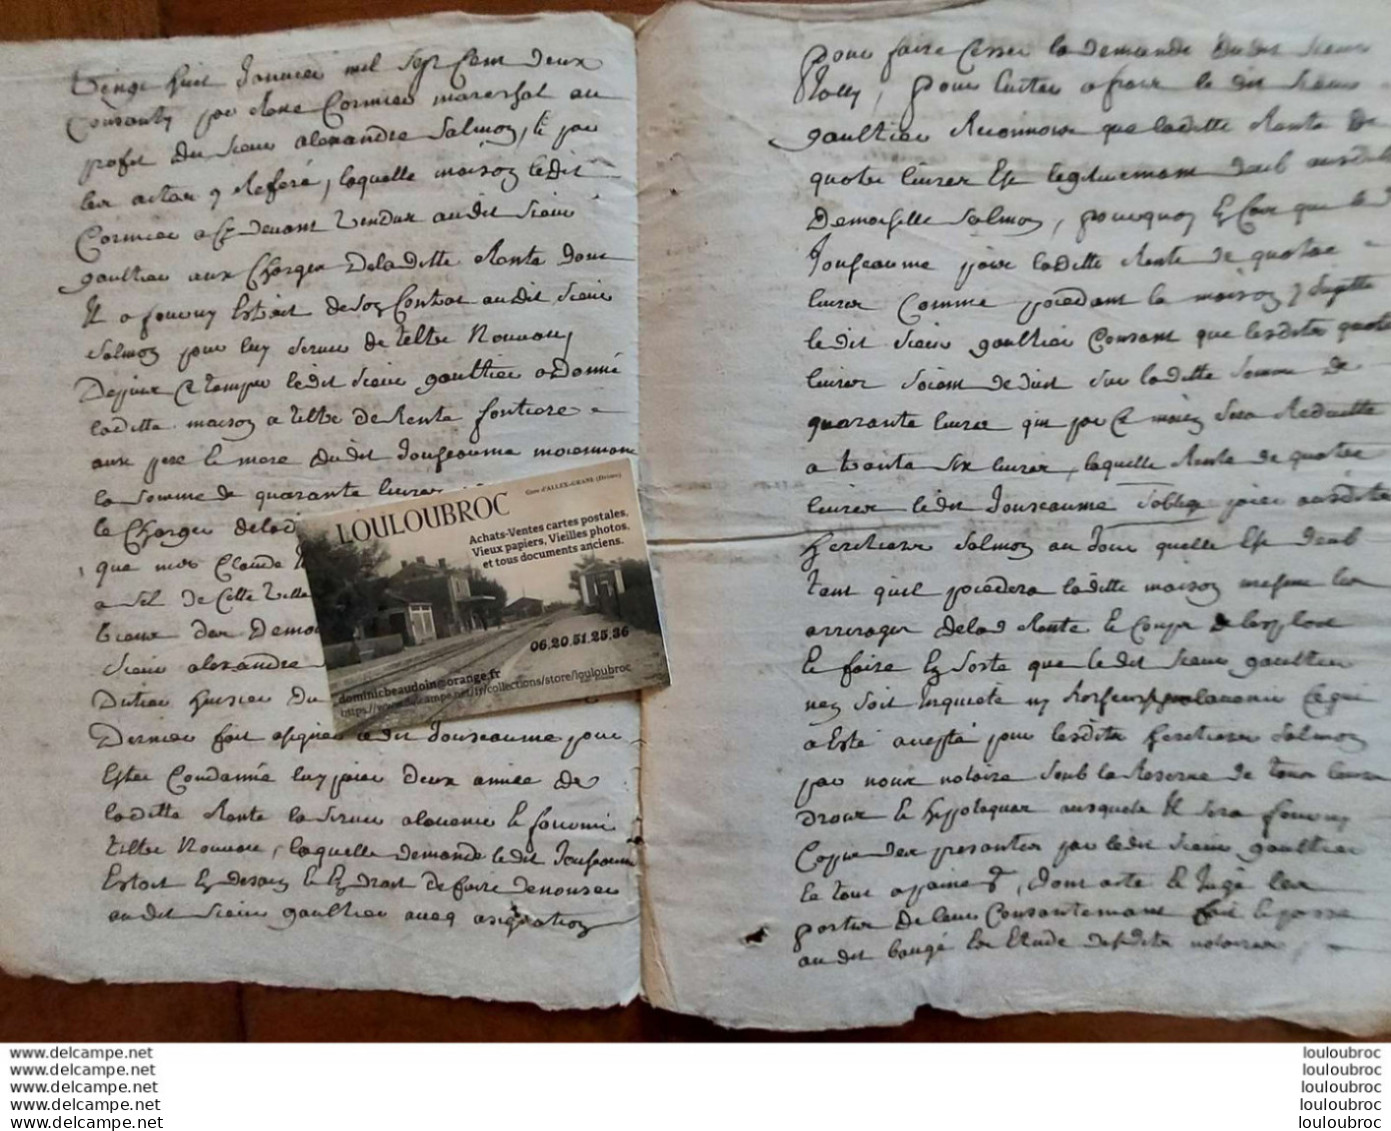 Vingt huit Janvier mil Sept Cent deux
Consenty par René Cormier mareschal au
profit du Sieur alexandre Salmon, et par
les actes y Referé, laquelle maison ledit
Cormier a Cy devant Vendue audit Sieur
gaultier aux Charges de laditte Rente dont
Il a fourny Extrait de son Contrat audit Sieur
Salmon pour luy Servir de tiltre Nouveau
Depuis Ce temps ledit Sieur gaultier a donné
laditte maison a tiltre de Rente fonciere
aux pere et mere dudit Jousseaume moiennant
la somme de quarante livres
le Charger delad
que mes Claude
a Sel de Cette Ville
des Demoi
Sieur alexandre
du
Dernier fait assigner ledit Jousseaume pour
Estre Condamné luy paier deux année de
laditte Rente la Servir alavenir et fournir
tiltre Nouveau, laquelle demande ledit Jousseaume
Estoit En dessein et En droit de faire denoncer
audit Sieur gaultier avecq assignation
pour faire Cesser la demande dudit Sieur
pour Eviter a frais le dit Sieur
gaultier Reconnoist que laditte Rente de
quatre livres Est legitimement deub ausdits
Demoiselle Salmon, pourquoy Il Consent que led
Jousseaume paie laditte Rente de quatre
livres Comme possedant la maison y Sujette
ledit Sieur gaultier Consent que lesdittes quatre
livres Soient deduit Sur laditte Somme de
quarante livres qui par Ce moien Sera Reduitte
a trente Six livres, laquelle Rente de quatre
livres ledit Jousseaume Soblige paier ausdits
heritiers Salmon au Jour quelle Est deub
tant quil possedera laditte maison mesme les
arrerages delad Rente et Coups de lexploit
et faire En Sorte que ledit Sieur gaultier
nen Soit Inquieté ny alavenir Ce qui
a Esté accepté pour lesdits heritiers Salmon
par nous notaire Soub la Reserve de tous leurs
droits et hypotequer ausquels Il Sera fourny
Copie des presentes par ledit Sieur gaultier
le tout a peine &, dont acte et Jugé les
parties de leur Consentement fait et passé
audit baugé En Etude desdits notaires
LOULOUBROC
Gare d'ALLEX-GRANE (Drôme)
Achats-Ventes cartes postales,
Vieux papiers, Vieilles photos,
et tous documents anciens.
06.20.51.25.36
dominicbeaudoin@orange.fr
https://www.delcampe.net/fr/collections/store/louloubroc
www.delcampe.net
www.delcampe.net
www.delcampe.net
www.delcampe.net
www.delcampe.net
louloubroc
louloubroc
louloubroc
louloubroc
louloubroc